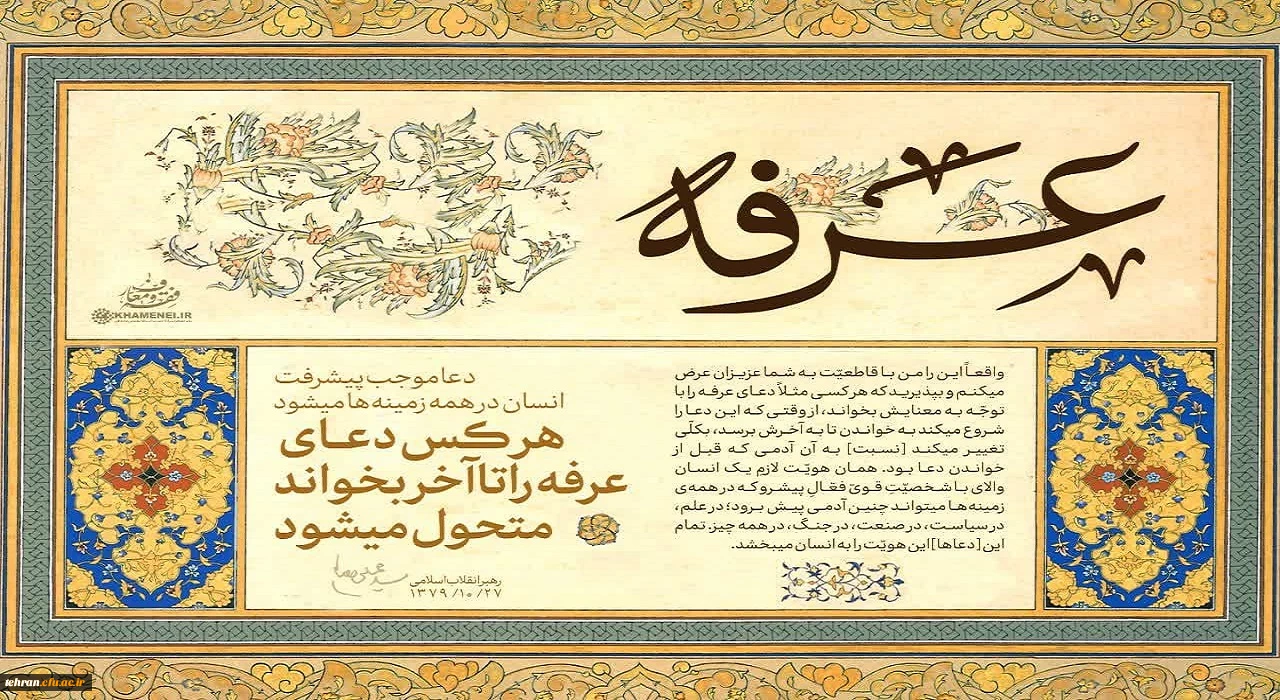 عرفه
فقه و معارف
KHAMENEI.IR
واقعاً این را من با قاطعیّت به شما عزیزان عرض
میکنم و بپذیرید که هر کسی مثلاً دعای عرفه را با
توجّه به معنایش بخواند، از وقتی که این دعا را
شروع میکند به خواندن تا به آخرش برسد، بکلّی
تغییر میکند [نسبت] به آن آدمی که قبل از
خواندن دعا بود. همان هویّت لازم یک انسان
والای با شخصیّتِ قویّ فعّالِ پیشرو که در همه‌ی
زمینه‌ها میتواند چنین آدمی پیش برود؛ در علم،
در سیاست، در صنعت، در جنگ، در همه چیز. تمام
این [دعاها] این هویّت را به انسان میبخشد.
دعا موجب پیشرفت
انسان در همه زمینه‌ها میشود
هر کس دعای
عرفه را تا آخر بخواند
متحول میشود
رهبر انقلاب اسلامی
۱۳۷۹/۱۰/۲۷
tehran.cfu.ac.ir